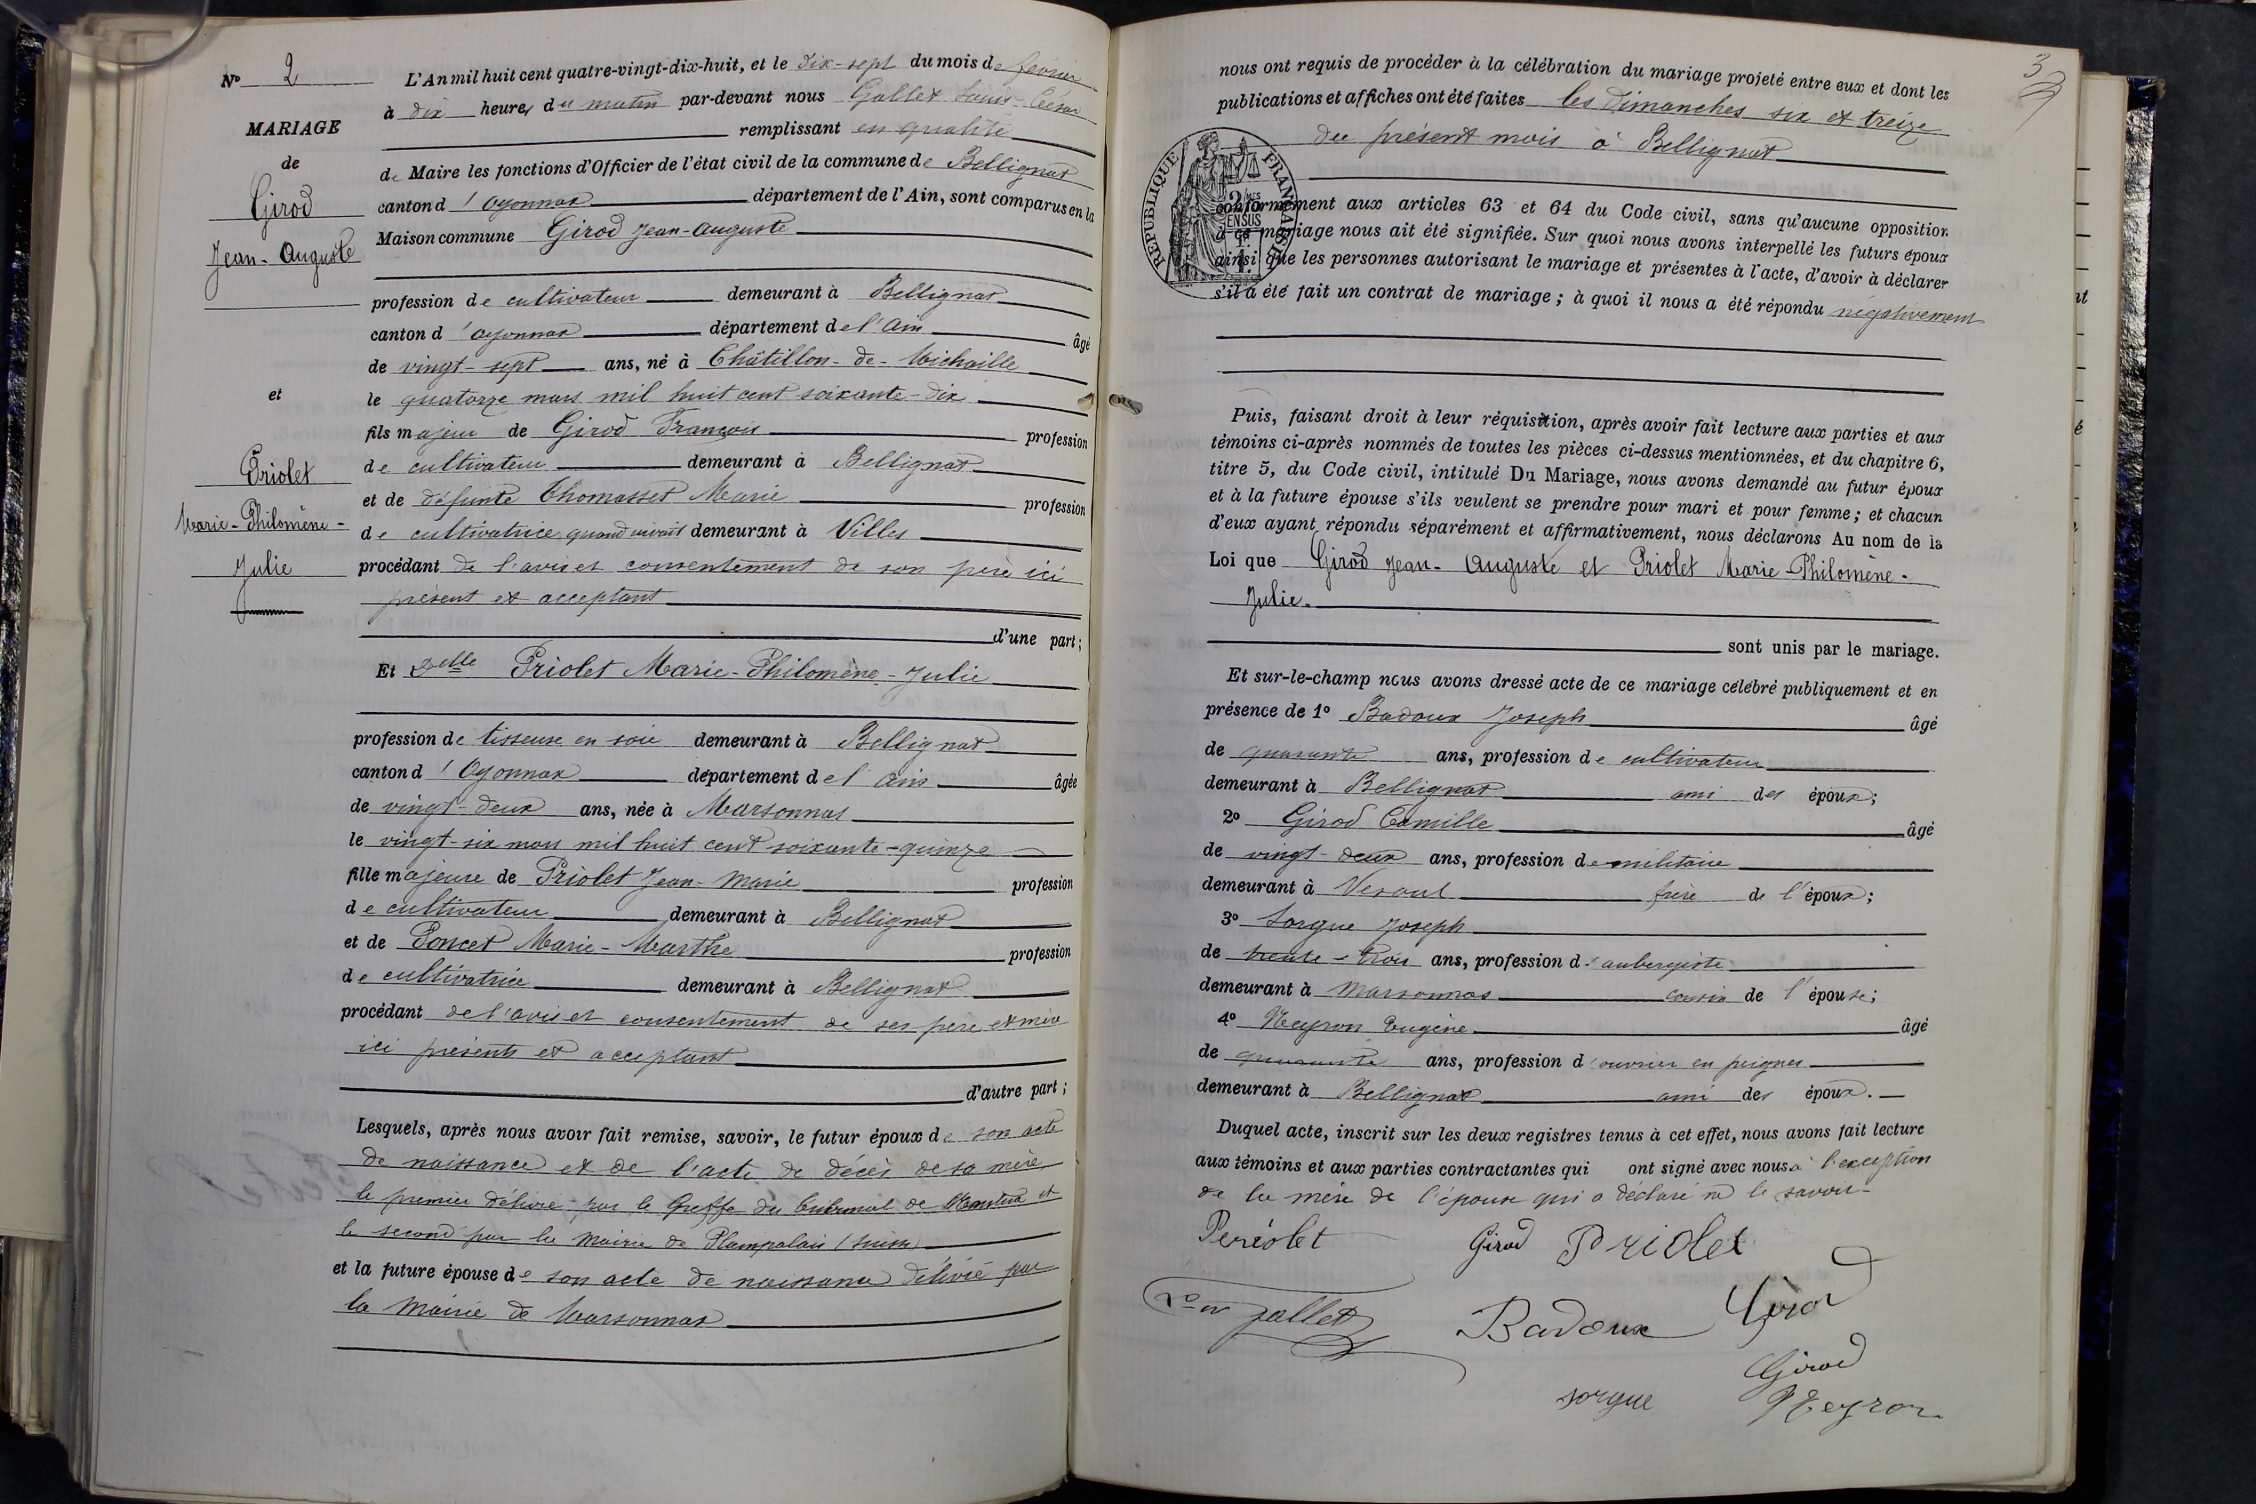 N° 2
MARIAGE
de
Girod
Jean-Auguste
et
Priolet
Marie-Philomène-
Julie
L'An mil huit cent quatre-vingt-dix-huit, et le dix-sept du mois de février
à dix heures du matin par-devant nous Gallet Louis-César
remplissant en qualité
de Maire les fonctions d'Officier de l'état civil de la commune de Bellignat
canton d'Oyonnax département de l'Ain, sont comparus en la
Maison commune Girod Jean-Auguste
profession de cultivateur demeurant à Bellignat
canton d'Oyonnax département de l'Ain âgé
de vingt-sept ans, né à Châtillon-de-Michaille
le quatorze mars mil huit cent soixante-dix
fils majeur de Girod François profession
de cultivateur demeurant à Bellignat
et de défunte Thomasset Marie profession
de cultivatrice quand vivait demeurant à Villes
procédant de l'avis et consentement de son père ici
présent et acceptant
d'une part;
Et Delle Priolet Marie-Philomène-Julie
profession de tisseuse en soie demeurant à Bellignat
canton d'Oyonnax département de l'Ain âgée
de vingt-deux ans, née à Marsonnas
le vingt-six mars mil huit cent soixante-quinze
fille majeure de Priolet Jean-Marie profession
de cultivateur demeurant à Bellignat
et de Poncet Marie-Marthe profession
de cultivatrice demeurant à Bellignat
procédant de l'avis et consentement de ses père et mère
ici présents et acceptant
d'autre part;
Lesquels, après nous avoir fait remise, savoir, le futur époux de son acte
de naissance et de l'acte de décès de sa mère,
le premier délivré par le Greffe du Tribunal de Nantua et
le second par la Mairie de Plampalais (Suisse)
et la future épouse de son acte de naissance délivré par
la Mairie de Marsonnas
3
nous ont requis de procéder à la célébration du mariage projeté entre eux et dont les
publications et affiches ont été faites les dimanches six et treize
du présent mois à Bellignat
RÉPUBLIQUE FRANÇAISE
conformément aux articles 63 et 64 du Code civil, sans qu'aucune opposition
à ce mariage nous ait été signifiée. Sur quoi nous avons interpellé les futurs époux
ainsi que les personnes autorisant le mariage et présentes à l'acte, d'avoir à déclarer
s'il a été fait un contrat de mariage; à quoi il nous a été répondu négativement
Puis, faisant droit à leur réquisition, après avoir fait lecture aux parties et aux
témoins ci-après nommés de toutes les pièces ci-dessus mentionnées, et du chapitre 6,
titre 5, du Code civil, intitulé Du Mariage, nous avons demandé au futur époux
et à la future épouse s'ils veulent se prendre pour mari et pour femme; et chacun
d'eux ayant répondu séparément et affirmativement, nous déclarons Au nom de la
Loi que Girod Jean-Auguste et Priolet Marie-Philomène-
Julie.
sont unis par le mariage.
Et sur-le-champ nous avons dressé acte de ce mariage célébré publiquement et en
présence de 1° Badoux Joseph âgé
de quarante ans, profession de cultivateur
demeurant à Bellignat ami des époux;
2° Girod Camille âgé
de vingt-deux ans, profession de militaire
demeurant à Vesoul frère de l'époux;
3° Sorgue Joseph
de trente-trois ans, profession d'aubergiste
demeurant à Marsonnas cousin de l'épouse;
4° Neyron Eugène âgé
de quarante ans, profession d'ouvrier en peignes
demeurant à Bellignat ami des époux.
Duquel acte, inscrit sur les deux registres tenus à cet effet, nous avons fait lecture
aux témoins et aux parties contractantes qui ont signé avec nous à l'exception
de la mère de l'épouse qui a déclaré ne le savoir
Periolet Girod Priolet
Gallet Badoux Girod
Girod
Sorgue Neyron